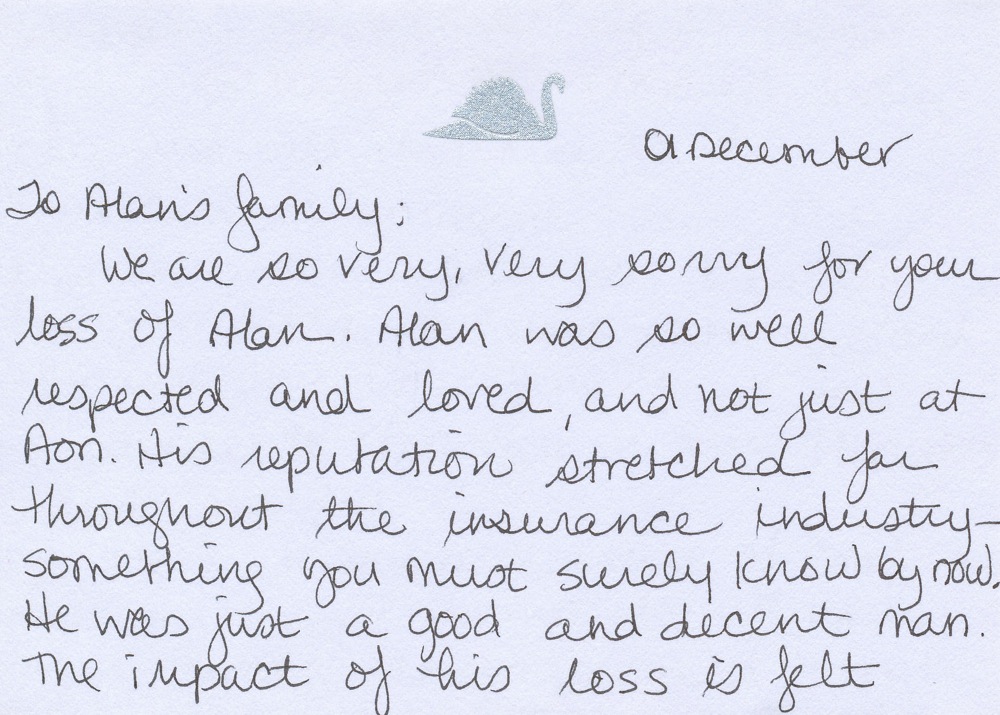 01 December
To Alan's family:
We are so very, very sorry for your
loss of Alan. Alan was so well
respected and loved, and not just at
Aon. His reputation stretched far
throughout the insurance industry—
something you must surely know by now.
He was just a good and decent man.
The impact of his loss is felt